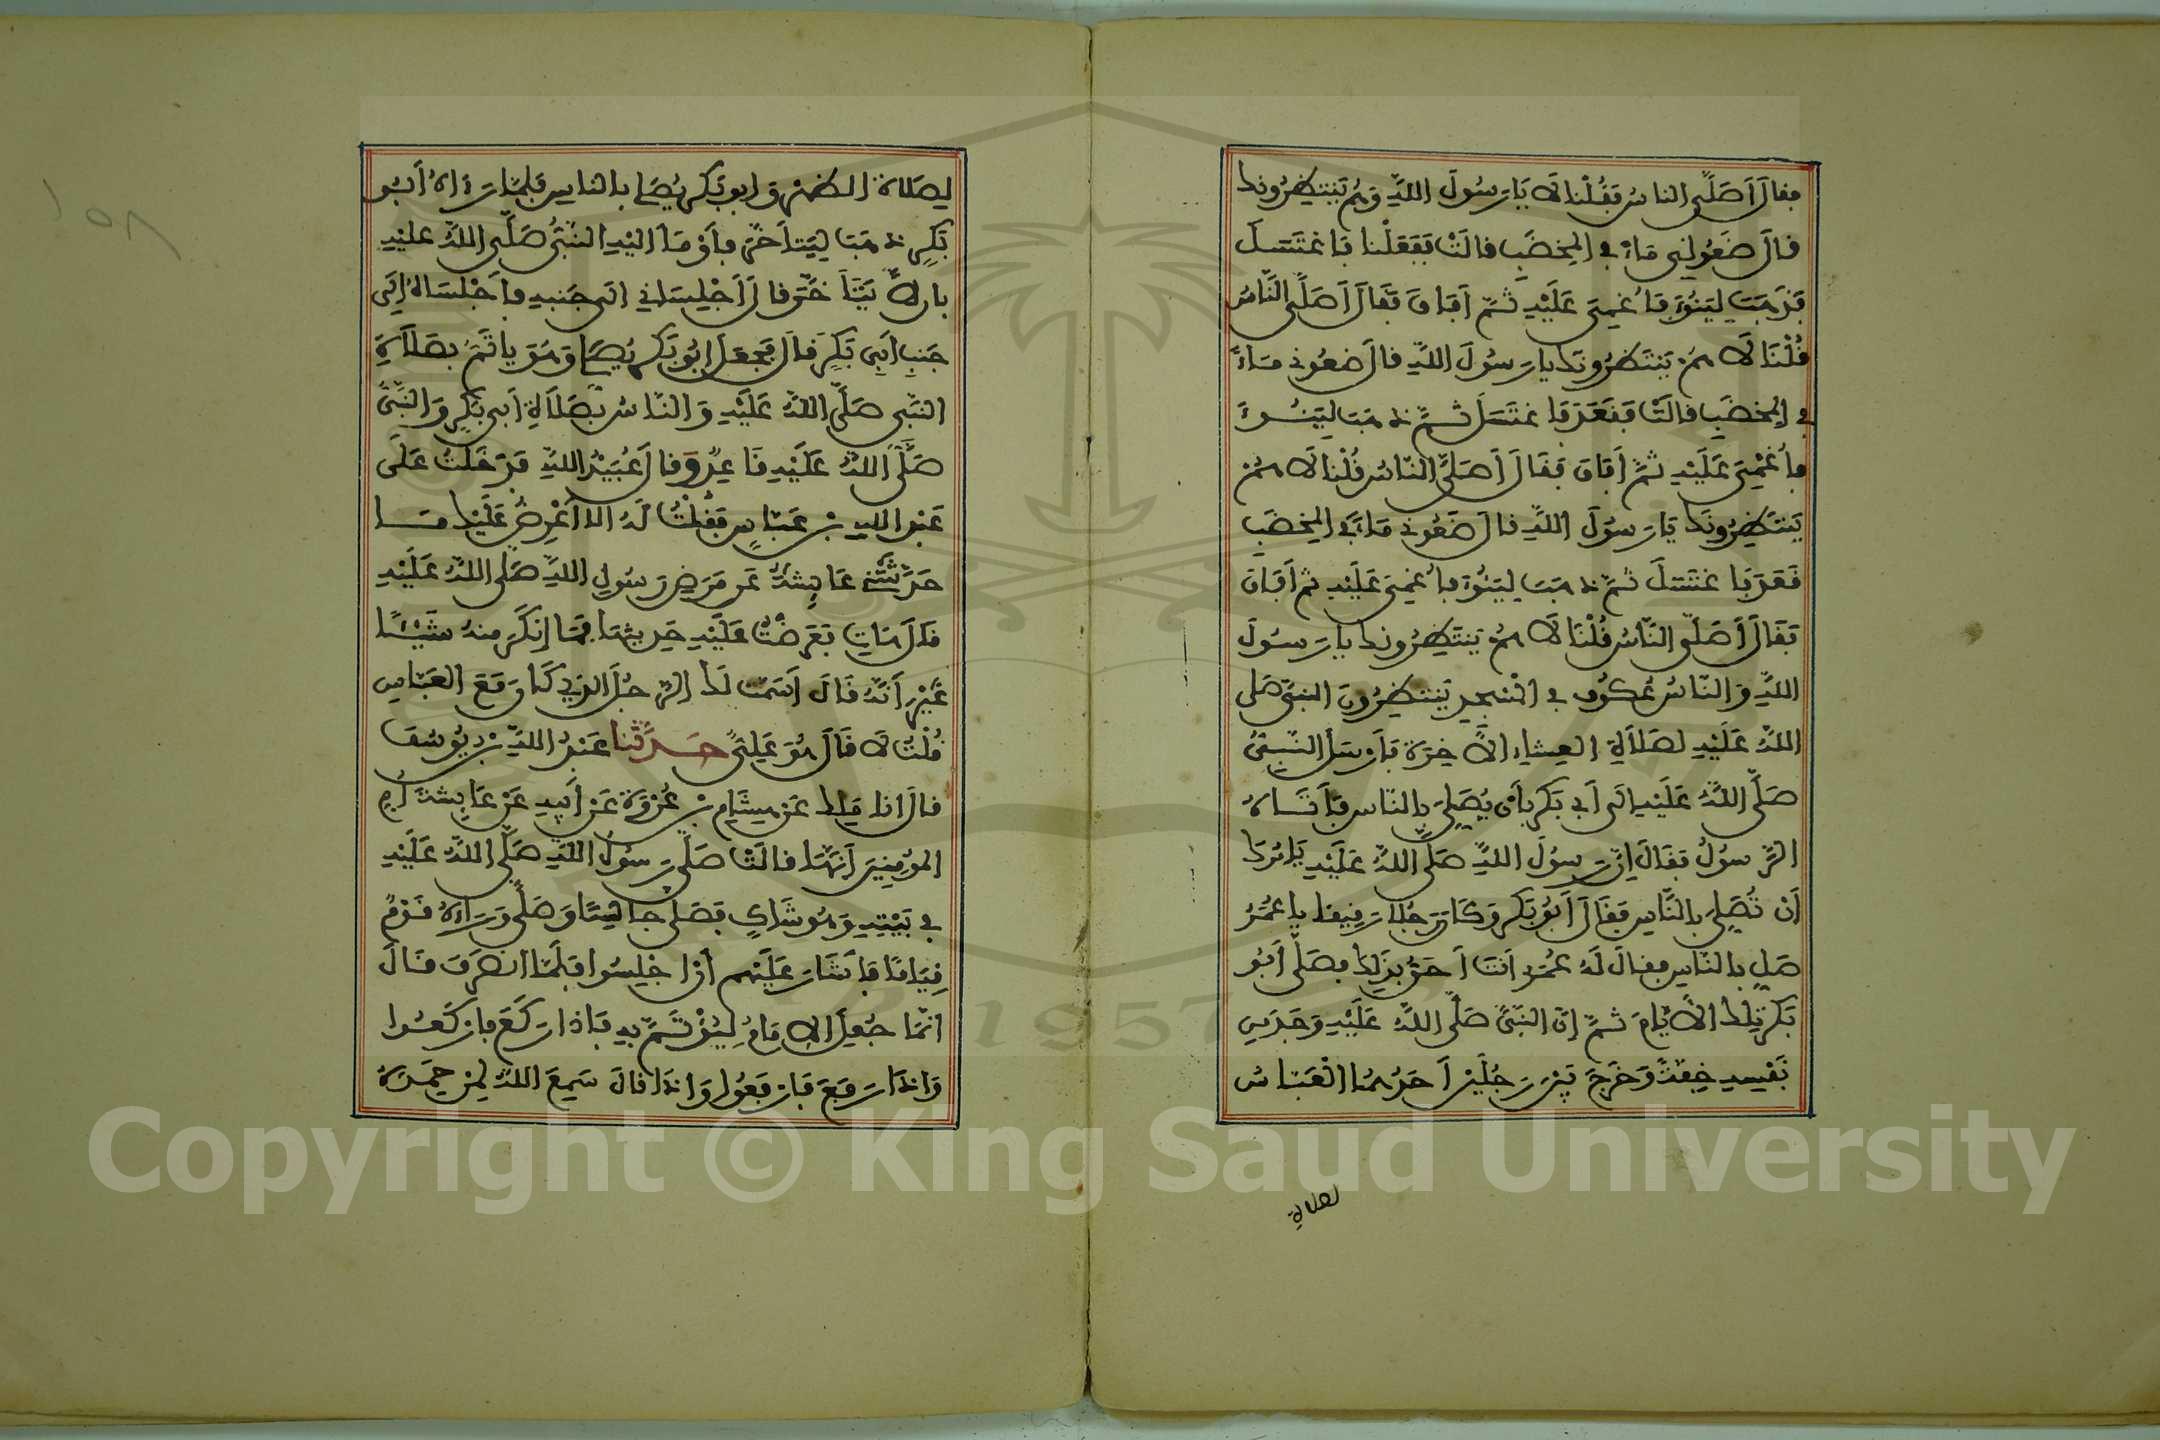 فقال أَصَلَّى الناسُ فَقُلْنا لَا يَا رَسُولَ اللهِ وَهُم يَنتظِرُونك
قالَ ضَعُوا لِى مَاءً في المِخضَبِ قالتْ فَفَعَلْنا فَاغْتَسَلَ
فَذَهَبَ لِيَنُوءَ فَأُغمِىَ عَلَيْهِ ثُمَّ أَفَاقَ فَقَالَ أَصَلَّى النَّاسُ
قُلْنَا لَا هُمْ يَنتَظِرُونَك يا رَسُولَ اللهِ قال ضعُونى مَاءً
في المِخضَبِ قالتْ فقَعَدَ فَاغتَسَلَ ثُمَّ ذهَبَ لِيَنُوءَ
فأُغْمِىَ عَلَيْهِ ثُمَّ أَفَاقَ فَقَالَ أَصَلَّى النّاسُ قُلْنا لَا هُمْ
يَنتَظِرُونَك يَا رَسُولَ اللهِ قالَ ضَعُونى مَاءً في المِخضَبِ
فَقَعَدَ فَاغتَسَلَ ثُمَّ ذهَبَ لِيَنُوءَ فأُغمِىَ عَلَيْهِ ثم أَفَاقَ
فَقَالَ أَصَلَّى النَّاسُ قُلْنَا لَا هُمْ يَنتَظِرُونك يا رَسُولَ
اللهِ وَالنّاسُ عُكُوف في المسْجدِ يَنتظِرُونَ النبىَّ صَلى
اللهُ عَلَيْهِ لصَلَاةِ العِشاءِ الاخِرَة فَأَرْسَلَ النَّبِىُّ
صَلَّى اللهُ عَلَيْهِ الى أبى بَكر بأَن يُصَلِّىَ بِالنّاسِ فَأَتَاهُ
الرَّسُولُ فقَالَ إنَّ رَسولَ اللهِ صَلَّى اللهُ عَلَيْهِ يَامُرُك
أَنْ تُصَلِّىَ بالنَّاسِ فَقَالَ أَبُو بَكر وَكَانَ رَجُلا رَقِيقا يا عُمَرُ
صَلِّ بالنّاسِ فقالَ لَهُ عُمَرُ أَنتَ أَحَقُّ بِذَلِك فصَلَّى أَبُو
بَكر تِلك الأَيَّامَ ثُمَّ إنَّ النَبىَّ صَلَّى اللهُ عَلَيْهِ وَجَدَ مِن
نَفْسِهِ خِفَّةً وَخَرَجَ بَيْنَ رَجُلَيْنِ أَحَدُهُمَا الْعَبّاسُ
لصلاة
لِصَلاة الظهْرِ وَابو بَكر يُصَلى بالناسِ فَلَمَّا رَءاهُ أَبُو
بَكرٍ ذهَبَ لِيَتأَخَّرَ فأَوْمَأَ اليْهِ النَّبىُّ صَلَّى اللهُ عليْهِ
بان لا يَتَأَخَّرَ قال أَجْلِسَانى الى جَنبِهِ فأَجْلَسَاهُ إلَى
جَنبِ أَبِى بَكر قَالَ فَجعَلَ ابُو بَكر يُصَلى وَهْوَ ياتَمُّ بصَلَاةِ
النبى صَلَّى اللهُ عَلَيْهِ وَالنّاسُ بصَلاةِ أبى بَكرٍ وَالنَّبىُّ
صَلَّى اللهُ عَلَيْهِ قَاعِدٌ وَقالَ عُبَيْدُ اللهِ فَدَخَلْتُ عَلَى
عَبْدِ اللهِ بْنِ عَبّاسٍ فَقُلْتُ لَهُ الا أَعْرِضُ عَلَيْك مَا
حَدَّثَتْنى عَائِشَةُ عَن مَرَضِ رَسُولِ اللهِ صَلى اللهُ عَلَيْهِ
قَالَ هَاتِ فعَرَضْتُ عَلَيْهِ حَدِيثهَا فمَا أنكَرَ مِنهُ شَيْئًا
غَيْرَ أَنَّهُ قَالَ أَسَمَّتْ لَك الرَّجُلَ الذِى كَانَ مَعَ العَبّاسِ
قُلْتُ لَا قَالَ هُوَ عَلِىٌّ حَدَّثَنَا عَبْدُ اللهِ بْنُ يُوسُفَ
قالَ انا مَلك عَن هِشَامِ بْنِ عُرْوَة عَن أبِيهِ عَنْ عَائِشَة أُمِ
المُؤْمِنِينَ أَنَّهَا قالَتْ صَلَّى رَسُولُ اللهِ صَلَّى اللهُ عَلَيْهِ
في بَيْتِهِ وَهُوَ شَاكٍ فَصَلى جالِسًا وَصَلَّى وَرَاءهُ قَوْمٌ
قِيَامًا فَأَشَارَ عَلَيْهم أَن اجْلِسُوا فَلَمَّا انصَرَفَ قالَ
انّمَا جُعِلَ الإمَامُ لِيُؤْتَمَّ بِهِ فَاذا رَكَعَ فارْكَعُوا
وَاذا رَفَعَ فَارْفَعُوا وَاذَا قالَ سَمِعَ اللهُ لِمَنْ حَمِدَهُ
١٥٨
Copyright © King Saud University
1957